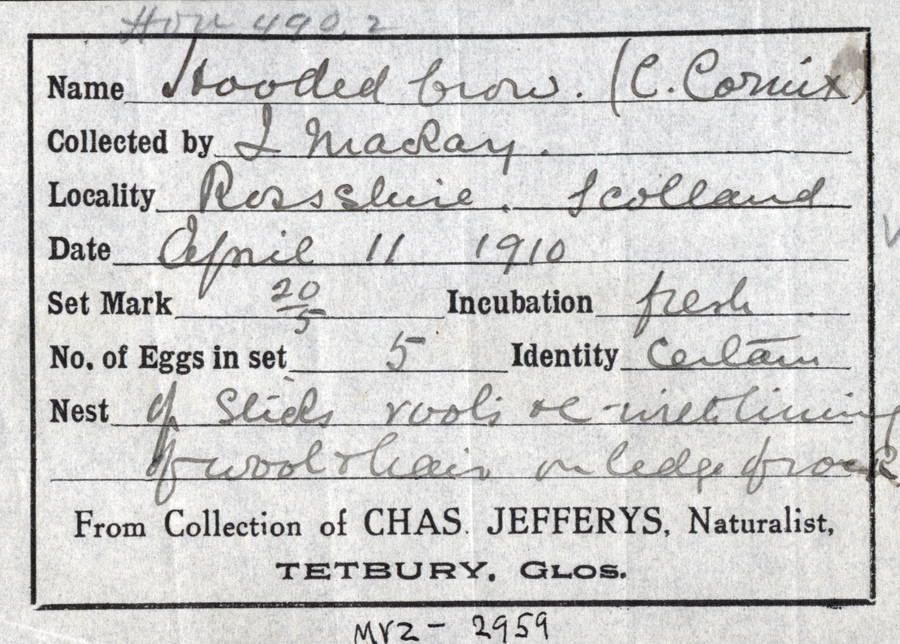 490.2
Name Hooded Crow. (C. Cornix)
Collected by I MacKay.
Locality Rossshire. Scotland
Date April 11 1910
Set Mark 20/5 Incubation fresh
No. of Eggs in set 5 Identity Certain
Nest of sticks roots &c - with lining
of wool & hair on ledge of rock
From Collection of CHAS. JEFFERYS, Naturalist,
TETBURY, GLOS.
MVZ - 2959